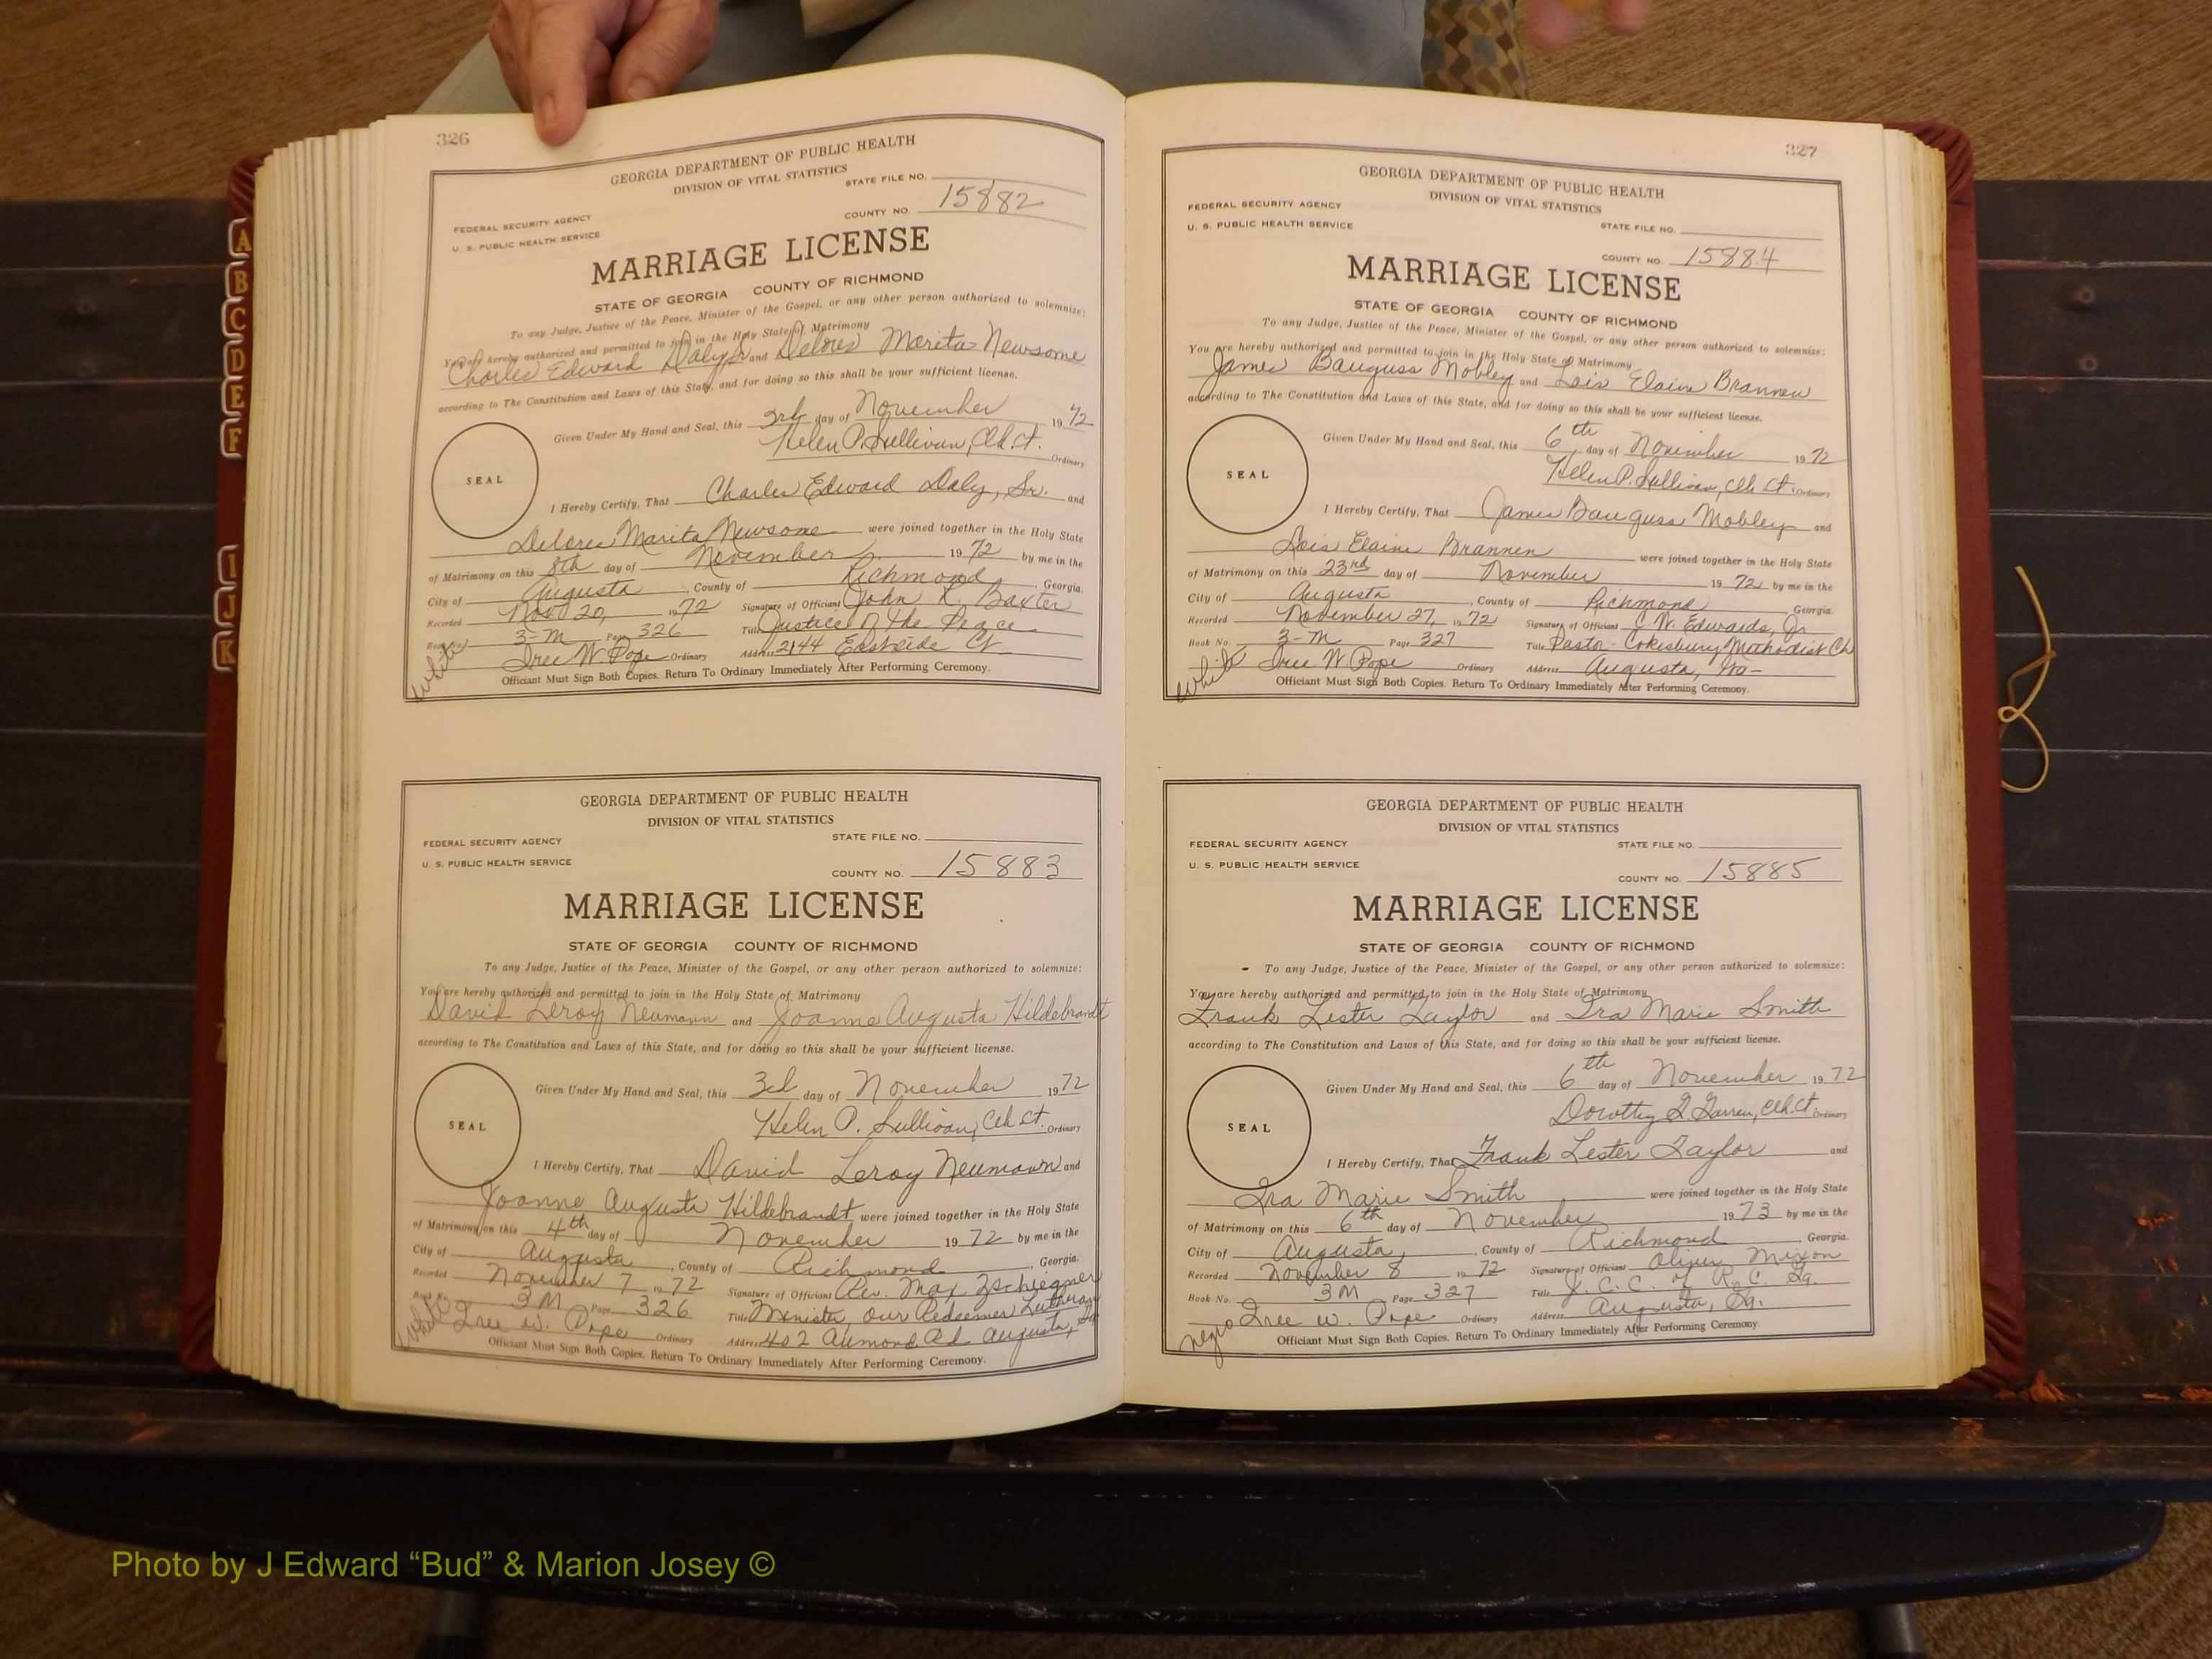 326
GEORGIA DEPARTMENT OF PUBLIC HEALTH
DIVISION OF VITAL STATISTICS
STATE FILE NO.
FEDERAL SECURITY AGENCY
U. S. PUBLIC HEALTH SERVICE
COUNTY NO. 15882
MARRIAGE LICENSE
STATE OF GEORGIA COUNTY OF RICHMOND
To any Judge, Justice of the Peace, Minister of the Gospel, or any other person authorized to solemnize:
You are hereby authorized and permitted to join in the Holy State of Matrimony
Charles Edward Daly, Sr. and Delores Marita Newsome
according to The Constitution and Laws of this State, and for doing so this shall be your sufficient license.
Given Under My Hand and Seal, this 3rd day of November 1972
Helen P. Sullivan, Clk. Ct. Ordinary
SEAL
I Hereby Certify, That Charles Edward Daly, Sr. and
Delores Marita Newsome were joined together in the Holy State
of Matrimony on this 8th day of November 1972 by me in the
City of Augusta, County of Richmond, Georgia.
Recorded Nov 20, 1972 Signature of Officiant John R. Baxter
Book No. 3-M Page 326 Title Justice of the Peace
white Iree W. Pope Ordinary Address 2144 Eastside Ct
Officiant Must Sign Both Copies. Return To Ordinary Immediately After Performing Ceremony.
GEORGIA DEPARTMENT OF PUBLIC HEALTH
DIVISION OF VITAL STATISTICS
FEDERAL SECURITY AGENCY STATE FILE NO.
U. S. PUBLIC HEALTH SERVICE
COUNTY NO. 15883
MARRIAGE LICENSE
STATE OF GEORGIA COUNTY OF RICHMOND
To any Judge, Justice of the Peace, Minister of the Gospel, or any other person authorized to solemnize:
You are hereby authorized and permitted to join in the Holy State of Matrimony
David Leroy Neumann and Joanne Augusta Hildebrandt
according to The Constitution and Laws of this State, and for doing so this shall be your sufficient license.
Given Under My Hand and Seal, this 3d day of November 1972
Helen P. Sullivan, Clk Ct. Ordinary
SEAL
I Hereby Certify, That David Leroy Neumann and
Joanne Augusta Hildebrandt were joined together in the Holy State
of Matrimony on this 4th day of November 1972 by me in the
City of Augusta, County of Richmond, Georgia.
Recorded November 7 1972 Signature of Officiant Rev. Max Zschiegner
Book No. 3M Page 326 Title Minister, Our Redeemer Lutheran
white Iree W. Pope Ordinary Address 402 Aumond Rd Augusta, Ga
Officiant Must Sign Both Copies. Return To Ordinary Immediately After Performing Ceremony.
327
GEORGIA DEPARTMENT OF PUBLIC HEALTH
DIVISION OF VITAL STATISTICS
FEDERAL SECURITY AGENCY
U. S. PUBLIC HEALTH SERVICE STATE FILE NO.
COUNTY NO. 15884
MARRIAGE LICENSE
STATE OF GEORGIA COUNTY OF RICHMOND
To any Judge, Justice of the Peace, Minister of the Gospel, or any other person authorized to solemnize:
You are hereby authorized and permitted to join in the Holy State of Matrimony
James Bauguss Mobley and Lois Elaine Brannen
according to The Constitution and Laws of this State, and for doing so this shall be your sufficient license.
Given Under My Hand and Seal, this 6th day of November 1972
Helen P. Sullivan, Clk Ct. Ordinary
SEAL
I Hereby Certify, That James Bauguss Mobley and
Lois Elaine Brannen were joined together in the Holy State
of Matrimony on this 23rd day of November 1972 by me in the
City of Augusta, County of Richmond, Georgia.
Recorded November 27, 1972 Signature of Officiant C. W. Edwards, Jr
Book No. 3-M Page 327 Title Pastor - Cokesbury Methodist Ch
white Iree W Pope Ordinary Address Augusta, Ga-
Officiant Must Sign Both Copies. Return To Ordinary Immediately After Performing Ceremony.
GEORGIA DEPARTMENT OF PUBLIC HEALTH
DIVISION OF VITAL STATISTICS
FEDERAL SECURITY AGENCY STATE FILE NO.
U. S. PUBLIC HEALTH SERVICE
COUNTY NO. 15885
MARRIAGE LICENSE
STATE OF GEORGIA COUNTY OF RICHMOND
To any Judge, Justice of the Peace, Minister of the Gospel, or any other person authorized to solemnize:
You are hereby authorized and permitted to join in the Holy State of Matrimony
Frank Lester Taylor and Ira Marie Smith
according to The Constitution and Laws of this State, and for doing so this shall be your sufficient license.
Given Under My Hand and Seal, this 6th day of November 1972
Dorothy Clk. Ct. Ordinary
SEAL
I Hereby Certify, That Frank Lester Taylor and
Ira Marie Smith were joined together in the Holy State
of Matrimony on this 6th day of November 1973 by me in the
City of Augusta, County of Richmond, Georgia.
Recorded November 8 1972 Signature of Officiant Oliver Mixon
Book No. 3M Page 327 Title J. C. C. of R. C. Ga.
negro Iree W. Pope Ordinary Address Augusta, Ga.
Officiant Must Sign Both Copies. Return To Ordinary Immediately After Performing Ceremony.
A
B
C
D
E
F
I
J
K
Photo by J Edward “Bud” & Marion Josey ©